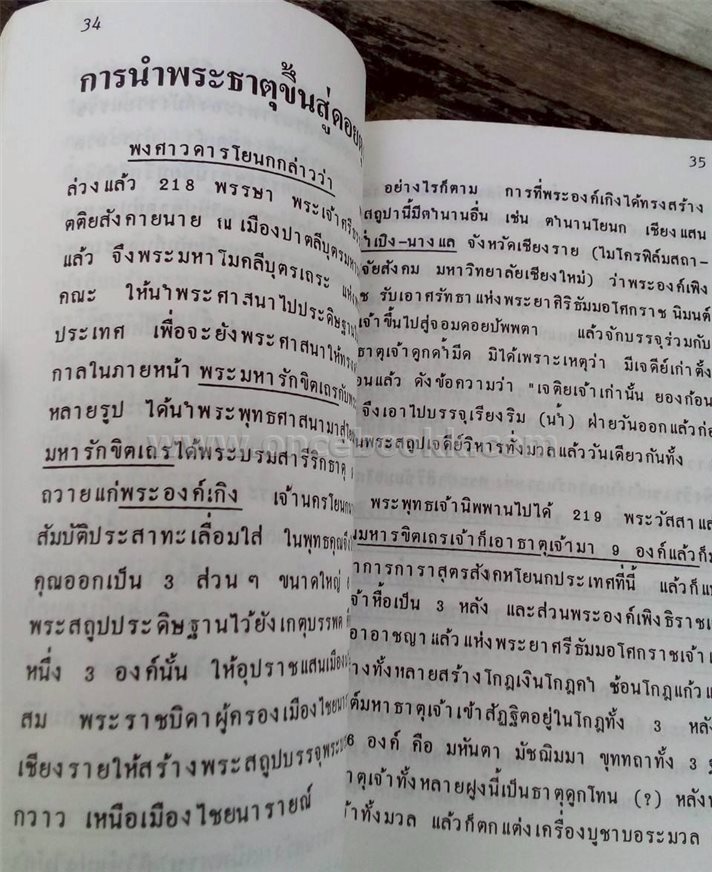 34
การนำพระธาตุขึ้นสู่ดอย
พงศาวดารโยนกกล่าวว่า
ล่วงแล้ว 218 พรรษา พระเจ้าศรี
ตติยสังคายนาย ณ เมืองปาตลีบุตรมหา
แล้ว จึงพระมหาโมคลีบุตรเถระ แห่ง
คณะ ให้นำพระศาสนาไปประดิษฐาน
ประเทศ เพื่อจะยังพระศาสนาให้ทรง
กาลในภายหน้า พระมหารักขิตเถรกับ
หลายรูป ได้นำพระพุทธศาสนามาสู่
มหารักขิตเถรได้พระบรมสารีริกธาตุ
ถวายแก่พระองค์เกิง เจ้านครโยนก
สมบัติประสาทะเลื่อมใส่ ในพุทธคุณ
คุณออกเป็น 3 ส่วนๆ ขนาดใหญ่
พระสถูปประดิษฐานไว้ยังเกตุบรรพต
หนึ่ง 3 องค์นั้น ให้อุปราชแสนเมือง
สม พระราชบิดาผู้ครองเมืองไชยนารา
เชียงรายให้สร้างพระสถูปบรรจุพระ
กวาว เหนือเมืองไชยนารายณ์
35
อย่างไรก็ตาม การที่พระองค์เกิงได้ทรงสร้าง
สถูปานี้มีตำนานอื่น เช่น ตำนานโยนก เชียงแสน
ำเปิง-นางแล จังหวัดเชียงราย (ไมโครฟิล์มสถา-
จัยสังคม มหาวิทยาลัยเชียงใหม่) ว่าพระองค์เพิง
ช รับเอาศรัทธาแห่งพระยาศิริธัมมอโศกราช นิมนต์
เจ้าขึ้นไปสู่จอมดอยปัพพตา แล้วจักบรรจุร่วมกับ
ธาตุเจ้าดูกดำมืด มิได้เพราะเหตุว่า มีเจดีย์เก่าตั้ง
อนแล้ว ดังข้อความว่า "เจติยเจ้าเก่านั้น ยองก้อน
จึงเอาไปบรรจุเรียงริม (น้ำ) ฝ่ายวันออกแล้วก่อ
นพระสถูปเจดีย์วิหารทั้งมวลแล้ววันเดียวกันทั้ง
พระพุทธเจ้านิพพานไปได้ 219 พระวัสสาแล
มหารขิตเถรเจ้าก็เอาธาตุเจ้ามา 9 องค์แล้วก็ม
าการการาสุตรสังคหโยนกประเทศที่นี้ แล้วก็แ
จ้าหื้อเป็น 3 หลัง และส่วนพระองค์เพิงธิราชเ
อาอาชญาแล้วแห่งพระยาศรีธัมมอโศกราชเจ้า เ
างทั้งหลายสร้างโกฏเงินโกฏคำ ซ้อนโกฏแก้ว แ
ต์มหาธาตุเจ้าเข้าสัฏฐิตอยู่ในโกฏทั้ง 3 หลัง
6 องค์ คือ มหันตา มัชฌิมมา ขุททถาทั้ง 3 ฐ
าตุเจ้าทั้งหลายฝูงนี้เป็นธาตุดูกโทน (?) หลัง
จ้าทั้งมวล แล้วก็ตกแต่งเครื่องบูชาบอระมวล
www.oncebookk.com